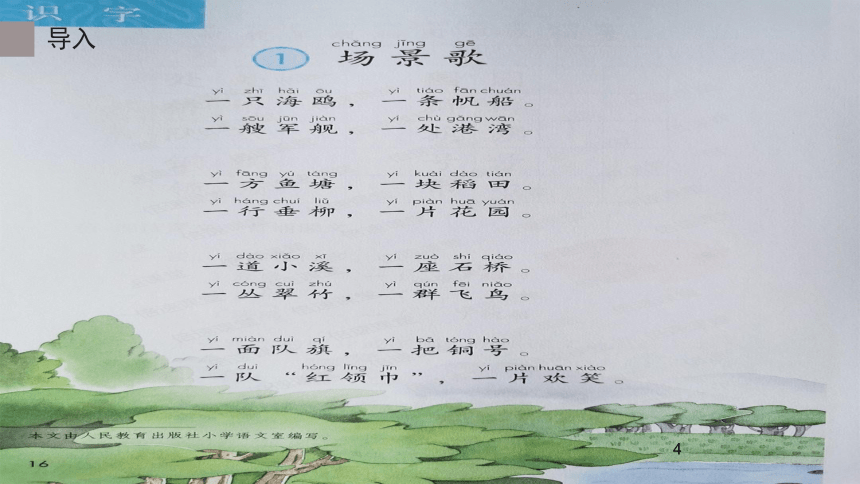 识 字
导入
chǎng jǐng gē
1 场 景 歌
yì zhī hǎi ōu yì tiáo fān chuán
一 只 海 鸥 , 一 条 帆 船 。
yì sōu jūn jiàn yí chù gǎng wān
一 艘 军 舰 , 一 处 港 湾 。
yì fāng yú táng yí kuài dào tián
一 方 鱼 塘 , 一 块 稻 田 。
yì háng chuí liǔ yí piàn huā yuán
一 行 垂 柳 , 一 片 花 园 。
yí dào xiǎo xī yí zuò shí qiáo
一 道 小 溪 , 一 座 石 桥 。
yì cóng cuì zhú yì qún fēi niǎo
一 丛 翠 竹 , 一 群 飞 鸟 。
yí miàn duì qí yì bǎ tóng hào
一 面 队 旗 , 一 把 铜 号 。
yí duì hóng lǐng jīn yí piàn huān xiào
一 队 “红 领 巾”, 一 片 欢 笑 。
本文由人民教育出版社小学语文室编写。
16
4